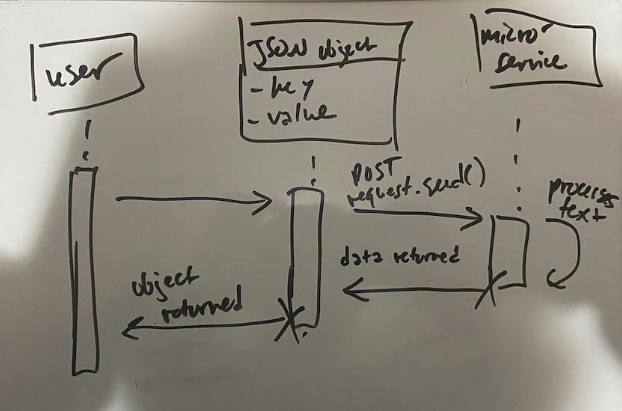 user
JSON object
- key
- value
micro
service
POST
request.send()
process
text
data returned
object
returned